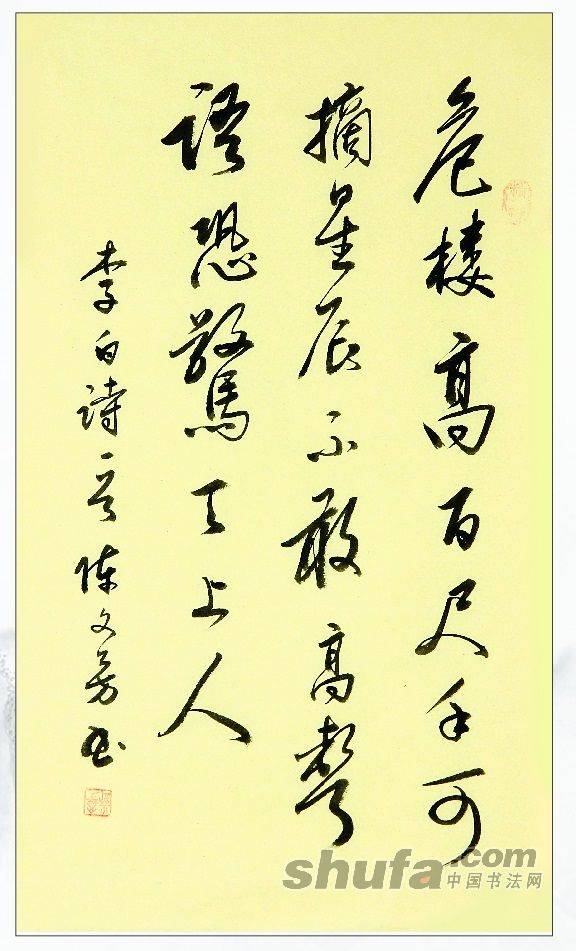 危楼高百尺手可
摘星辰不敢高声
语恐驚天上人
李白诗一首陈文芳书
shufa.com
中国书法网